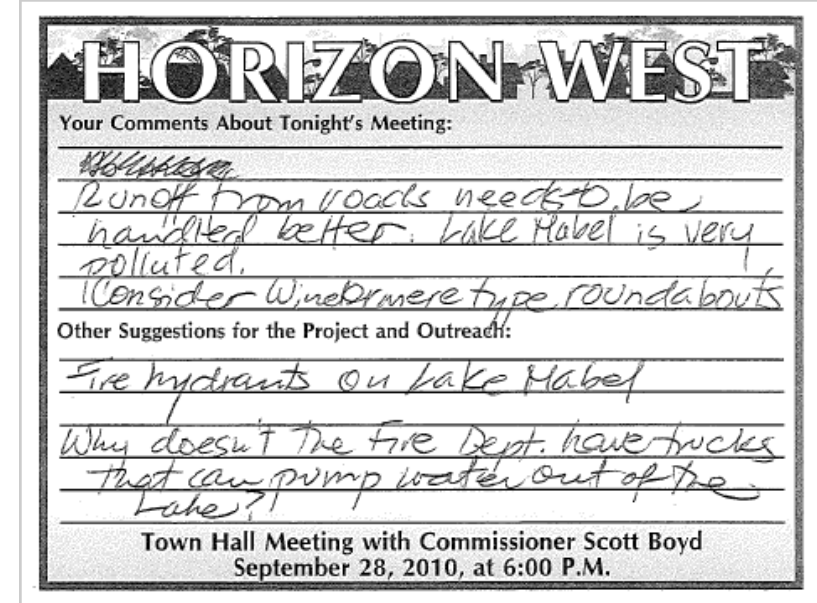 HORIZON WEST
Your Comments About Tonight's Meeting:
Runoff from roads needs to be
handled better. Lake Mabel is very
polluted.
Consider Windermere type roundabouts
Other Suggestions for the Project and Outreach:
Fire hydrants on Lake Mabel
Why doesn't the Fire Dept. have trucks
that can pump water out of the
Lake?
Town Hall Meeting with Commissioner Scott Boyd
September 28, 2010, at 6:00 P.M.